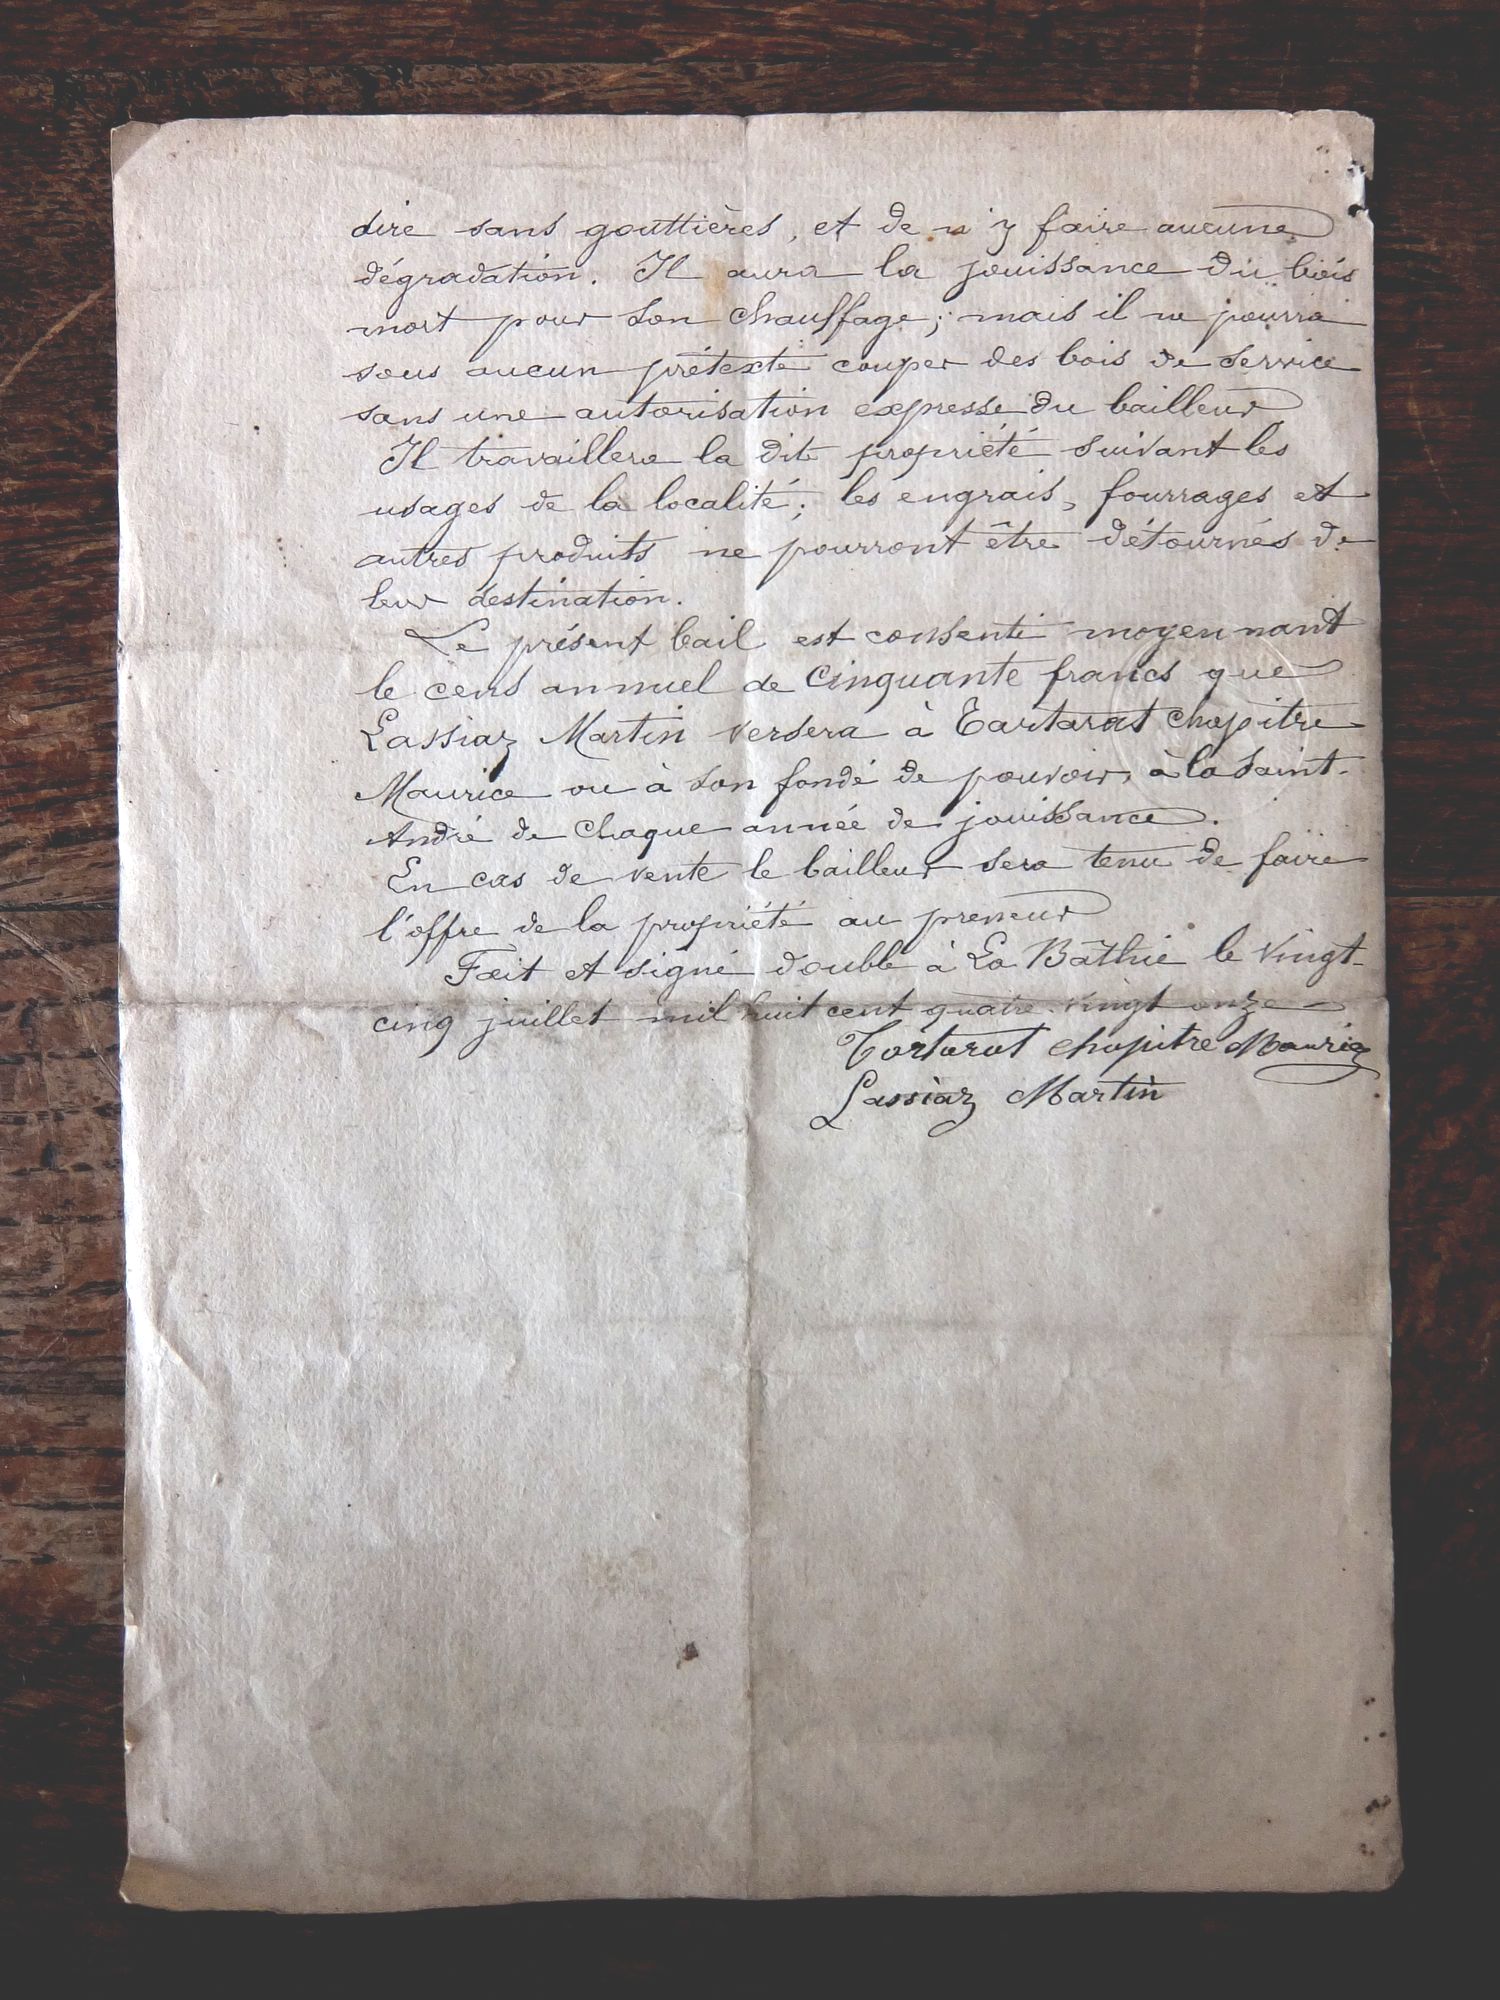 dire sans gouttières, et de n'y faire aucune
dégradation. Il aura la jouissance du bois
mort pour son chauffage; mais il ne pourra
sous aucun prétexte couper des bois de service
sans une autorisation expresse du bailleur
Il travaillera la dite propriété suivant les
usages de la localité; les engrais, fourrages et
autres produits ne pourront être détournés de
leur destination.
Le présent bail est consenti moyennant
le cens annuel de cinquante francs que
Lassiaz Martin versera à Tartarat chapitre
Maurice ou à son fondé de pouvoir, à la Saint-
André de chaque année de jouissance.
En cas de vente le bailleur sera tenu de faire
l'offre de la propriété au preneur
Fait et signé double à La Bâthie le vingt-
cinq juillet mil huit cent quatre-vingt onze
Tartarat chapitre Maurice
Lassiaz Martin